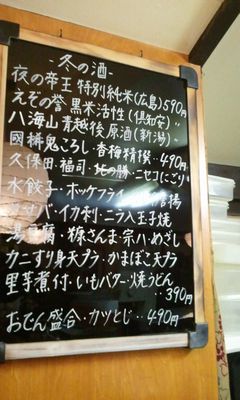 -冬の酒-
夜の帝王 特別純米(広島)590円
えぞの誉 黒米活性(倶知安)〃
八海山 青越後 原酒(新潟)〃
國稀 鬼ころし・香梅 精撰・490円
久保田・福司・北の勝・ニセコにごり
水餃子・ホッケフライ
サバ・イカ刺・ニラ入玉子焼
湯豆腐・糠さんま・宗八・めざし
カニすり身天プラ・かまぼこ天プラ
里芋煮付・いもバター・焼うどん
‥390円
おでん盛合・カツとじ‥490円